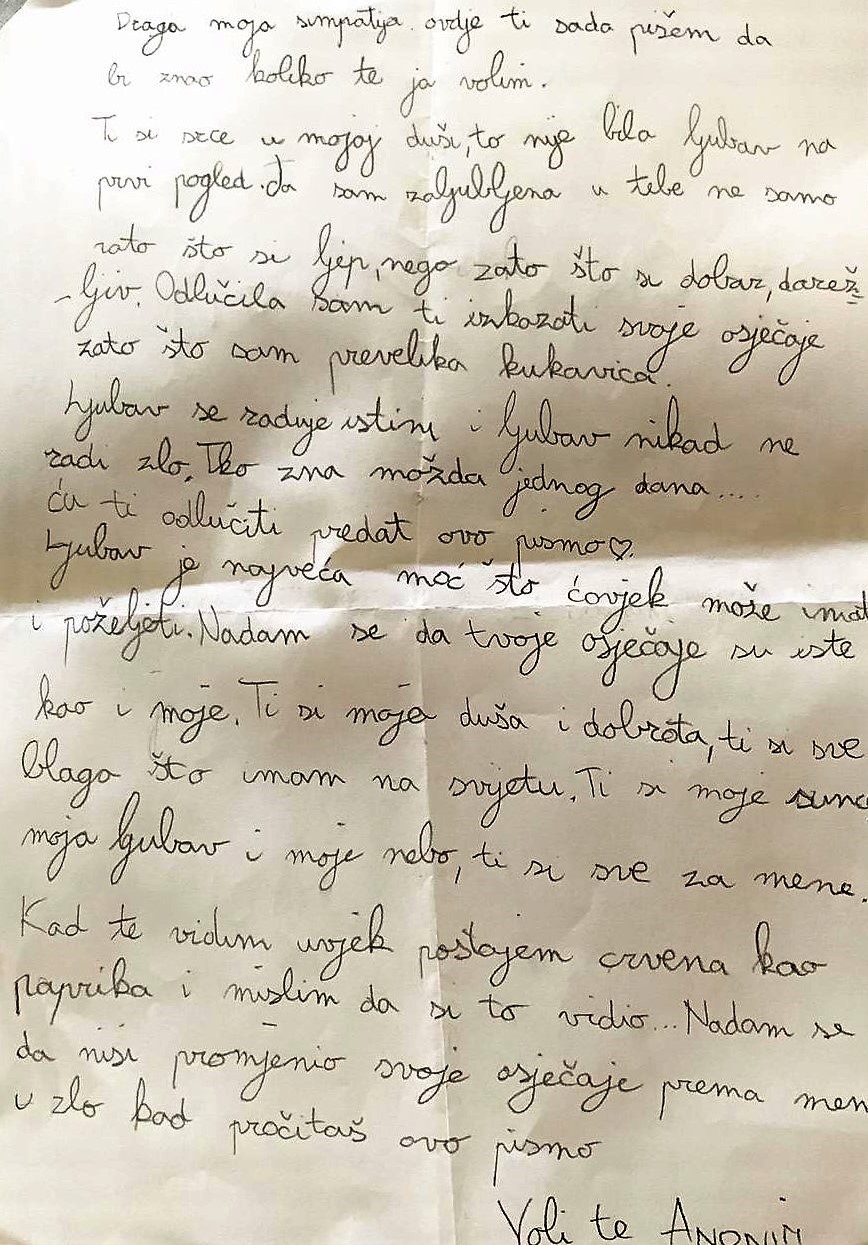 Draga moja simpatija ovdje ti sada pišem da
bi znao koliko te ja volim.
Ti si srce u mojoj duši, to nije bila ljubav na
prvi pogled. Ja sam zaljubljena u tebe ne samo
zato što si ljep, nego zato što si dobar, darež
-ljiv. Odlučila sam ti iskazati svoje osječaje
zato što sam prevelika kukavica.
Ljubav se raduje istini i ljubav nikad ne
radi zlo. Tko zna možda jednog dana....
ću ti odlučiti predat ovo pismo♡.
Ljubav je najveća moć što ćovjek može imat
i poželjeti. Nadam se da tvoje osječaje su iste
kao i moje. Ti si moja duša i dobrota, ti si sve
blago što imam na svjetu. Ti si moje sunc
moja ljubav i moje nebo, ti si sve za mene.
Kad te vidim uvjek postajem crvena kao
paprika i mislim da si to vidio... Nadam se
da nisi promjenio svoje osječaje prema men
u zlo kad pročitaš ovo pismo
Voli te ANONIM